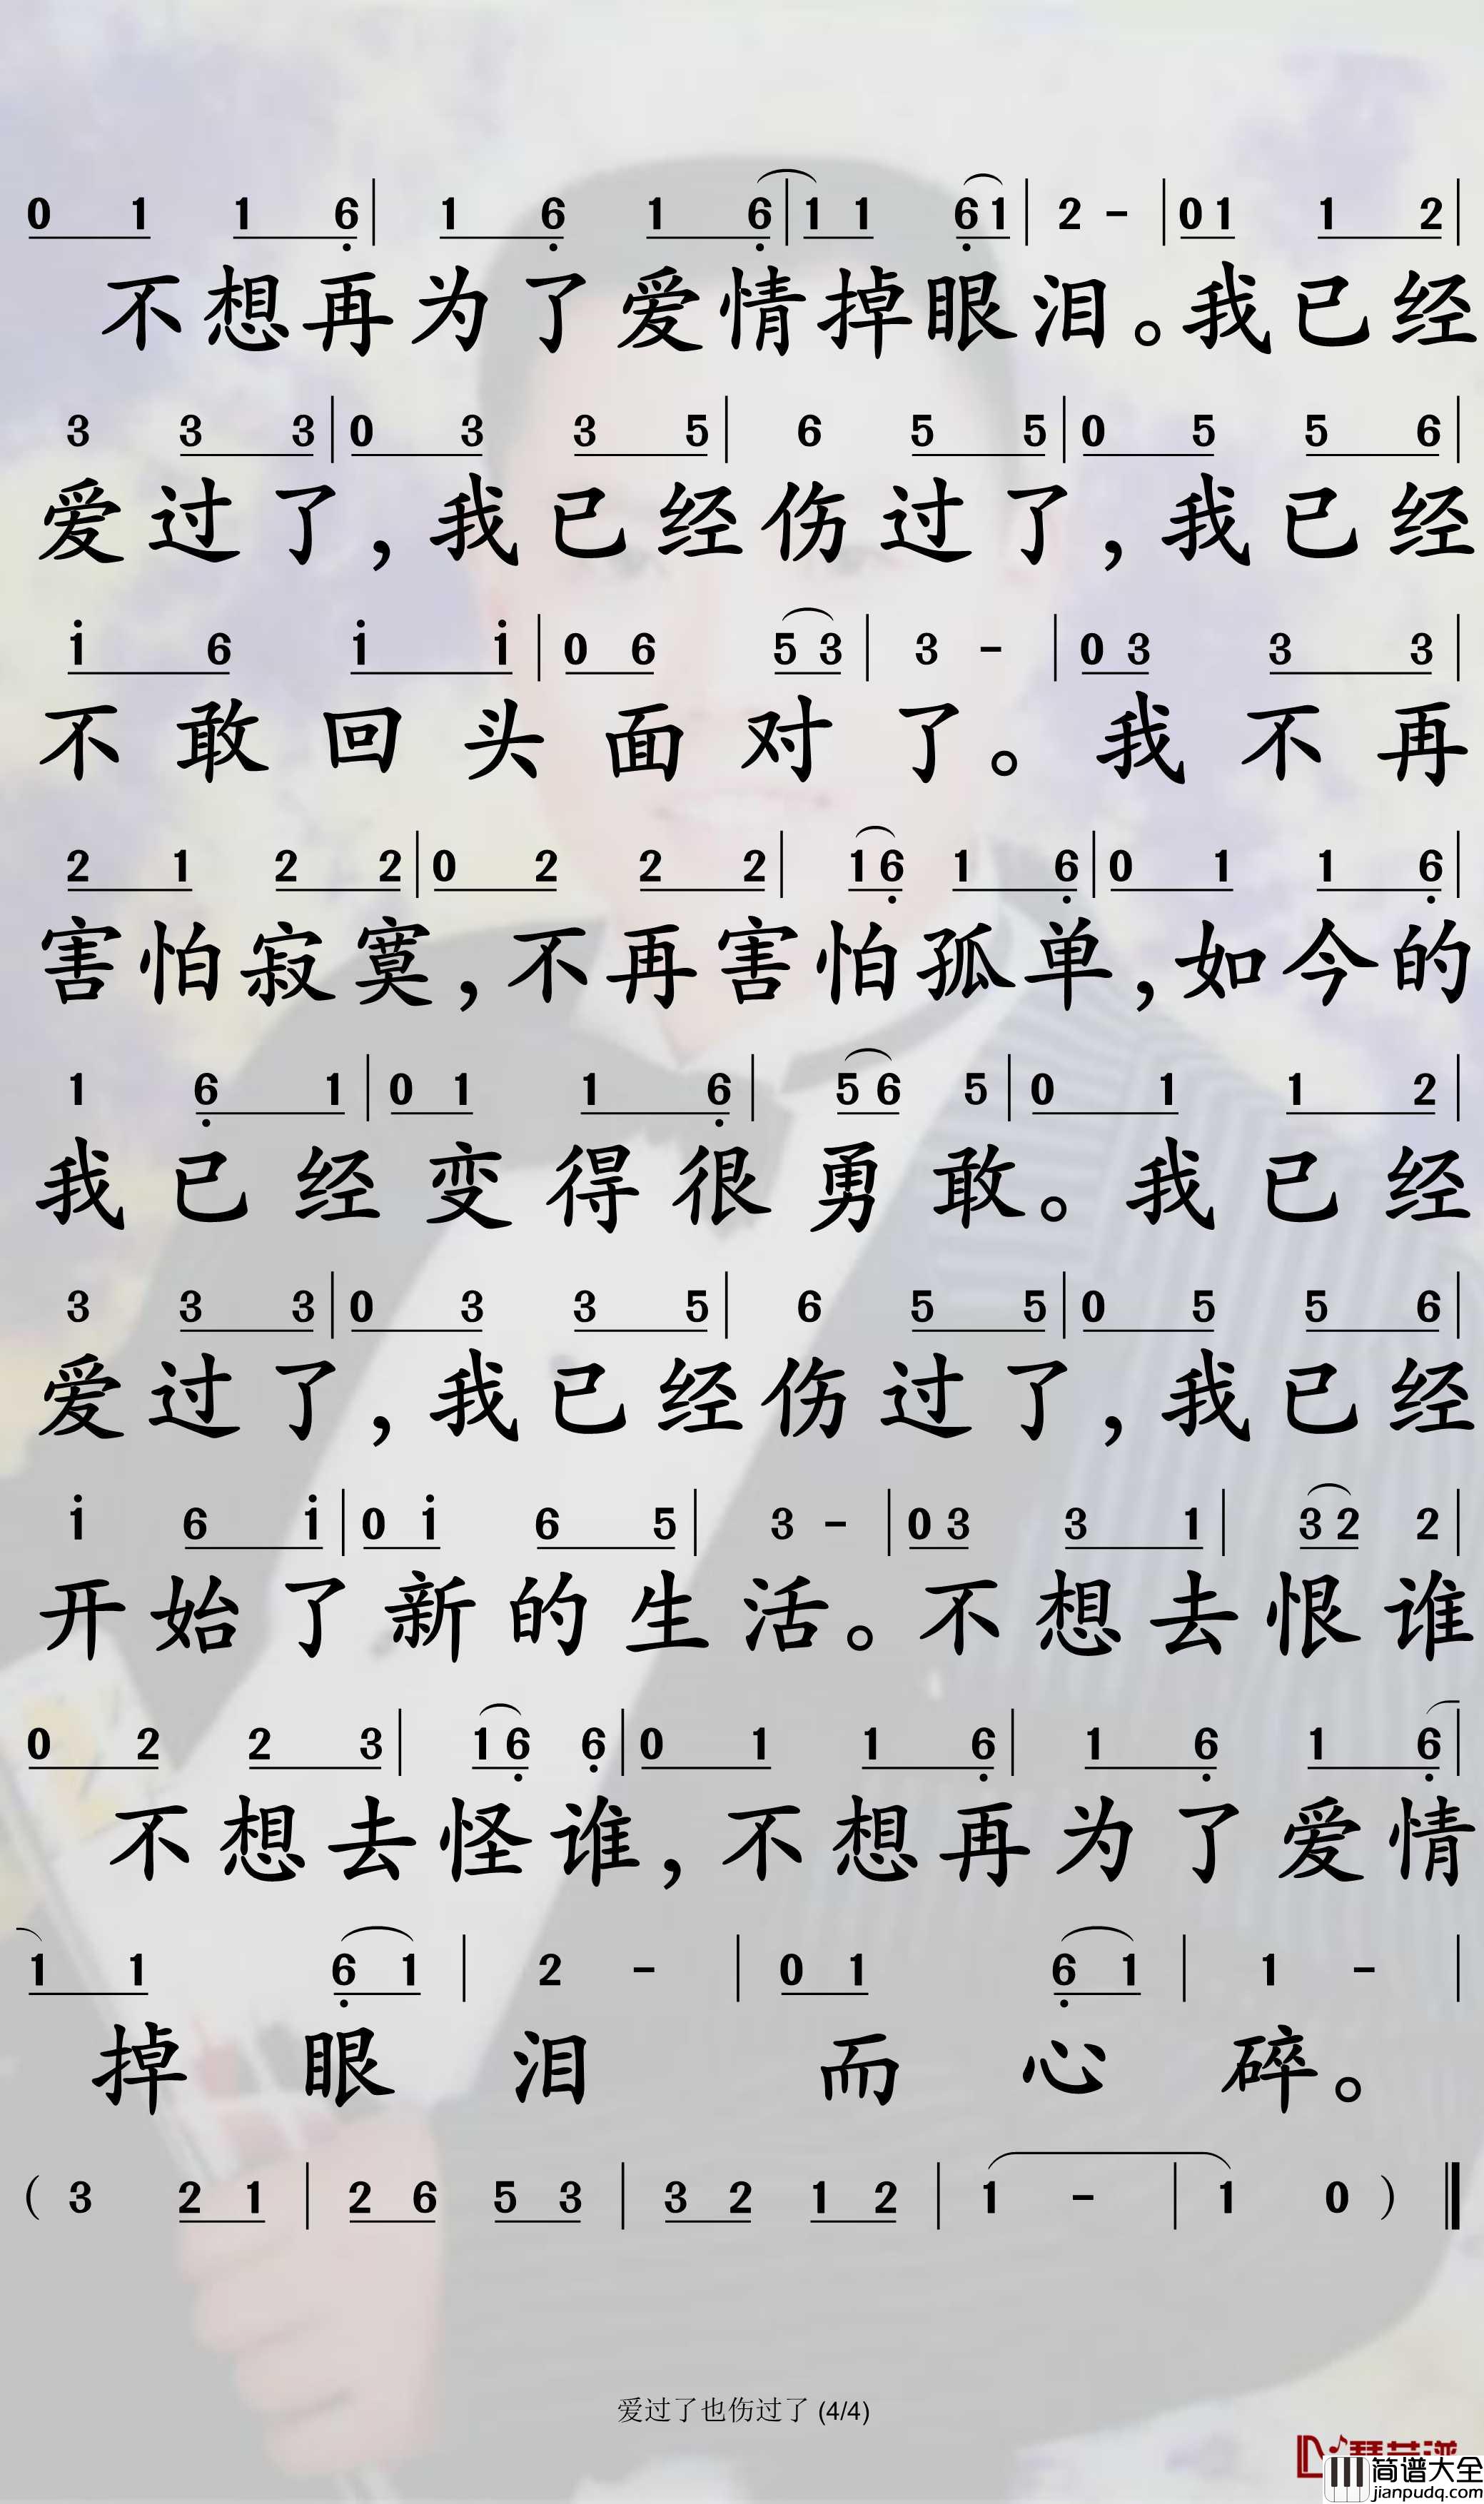 0 1 1 6 | 1 6 1 6 | 1 1 6 1 | 2 - | 0 1 1 2 |
不想再为了爱情掉眼泪。我已经
3 3 3 | 0 3 3 5 | 6 5 5 | 0 5 5 6 |
爱过了,我已经伤过了,我已经
i 6 i i | 0 6 5 3 | 3 - | 0 3 3 3 |
不敢回头面对了。我不再
2 1 2 2 | 0 2 2 2 | 1 6 1 6 | 0 1 1 6 |
害怕寂寞,不再害怕孤单,如今的
1 6 1 | 0 1 1 6 | 5 6 5 | 0 1 1 2 |
我已经变得很勇敢。我已经
3 3 3 | 0 3 3 5 | 6 5 5 | 0 5 5 6 |
爱过了,我已经伤过了,我已经
i 6 i | 0 i 6 5 | 3 - | 0 3 3 1 | 3 2 2 |
开始了新的生活。不想去恨谁
0 2 2 3 | 1 6 6 | 0 1 1 6 | 1 6 1 6 |
不想去怪谁,不想再为了爱情
1 1 6 1 | 2 - | 0 1 6 1 | 1 - |
掉眼泪而心碎。
( 3 2 1 | 2 6 5 3 | 3 2 1 2 | 1 - | 1 0 ) ‖
爱过了也伤过了 (4/4)
简谱大全
jianpudq.com